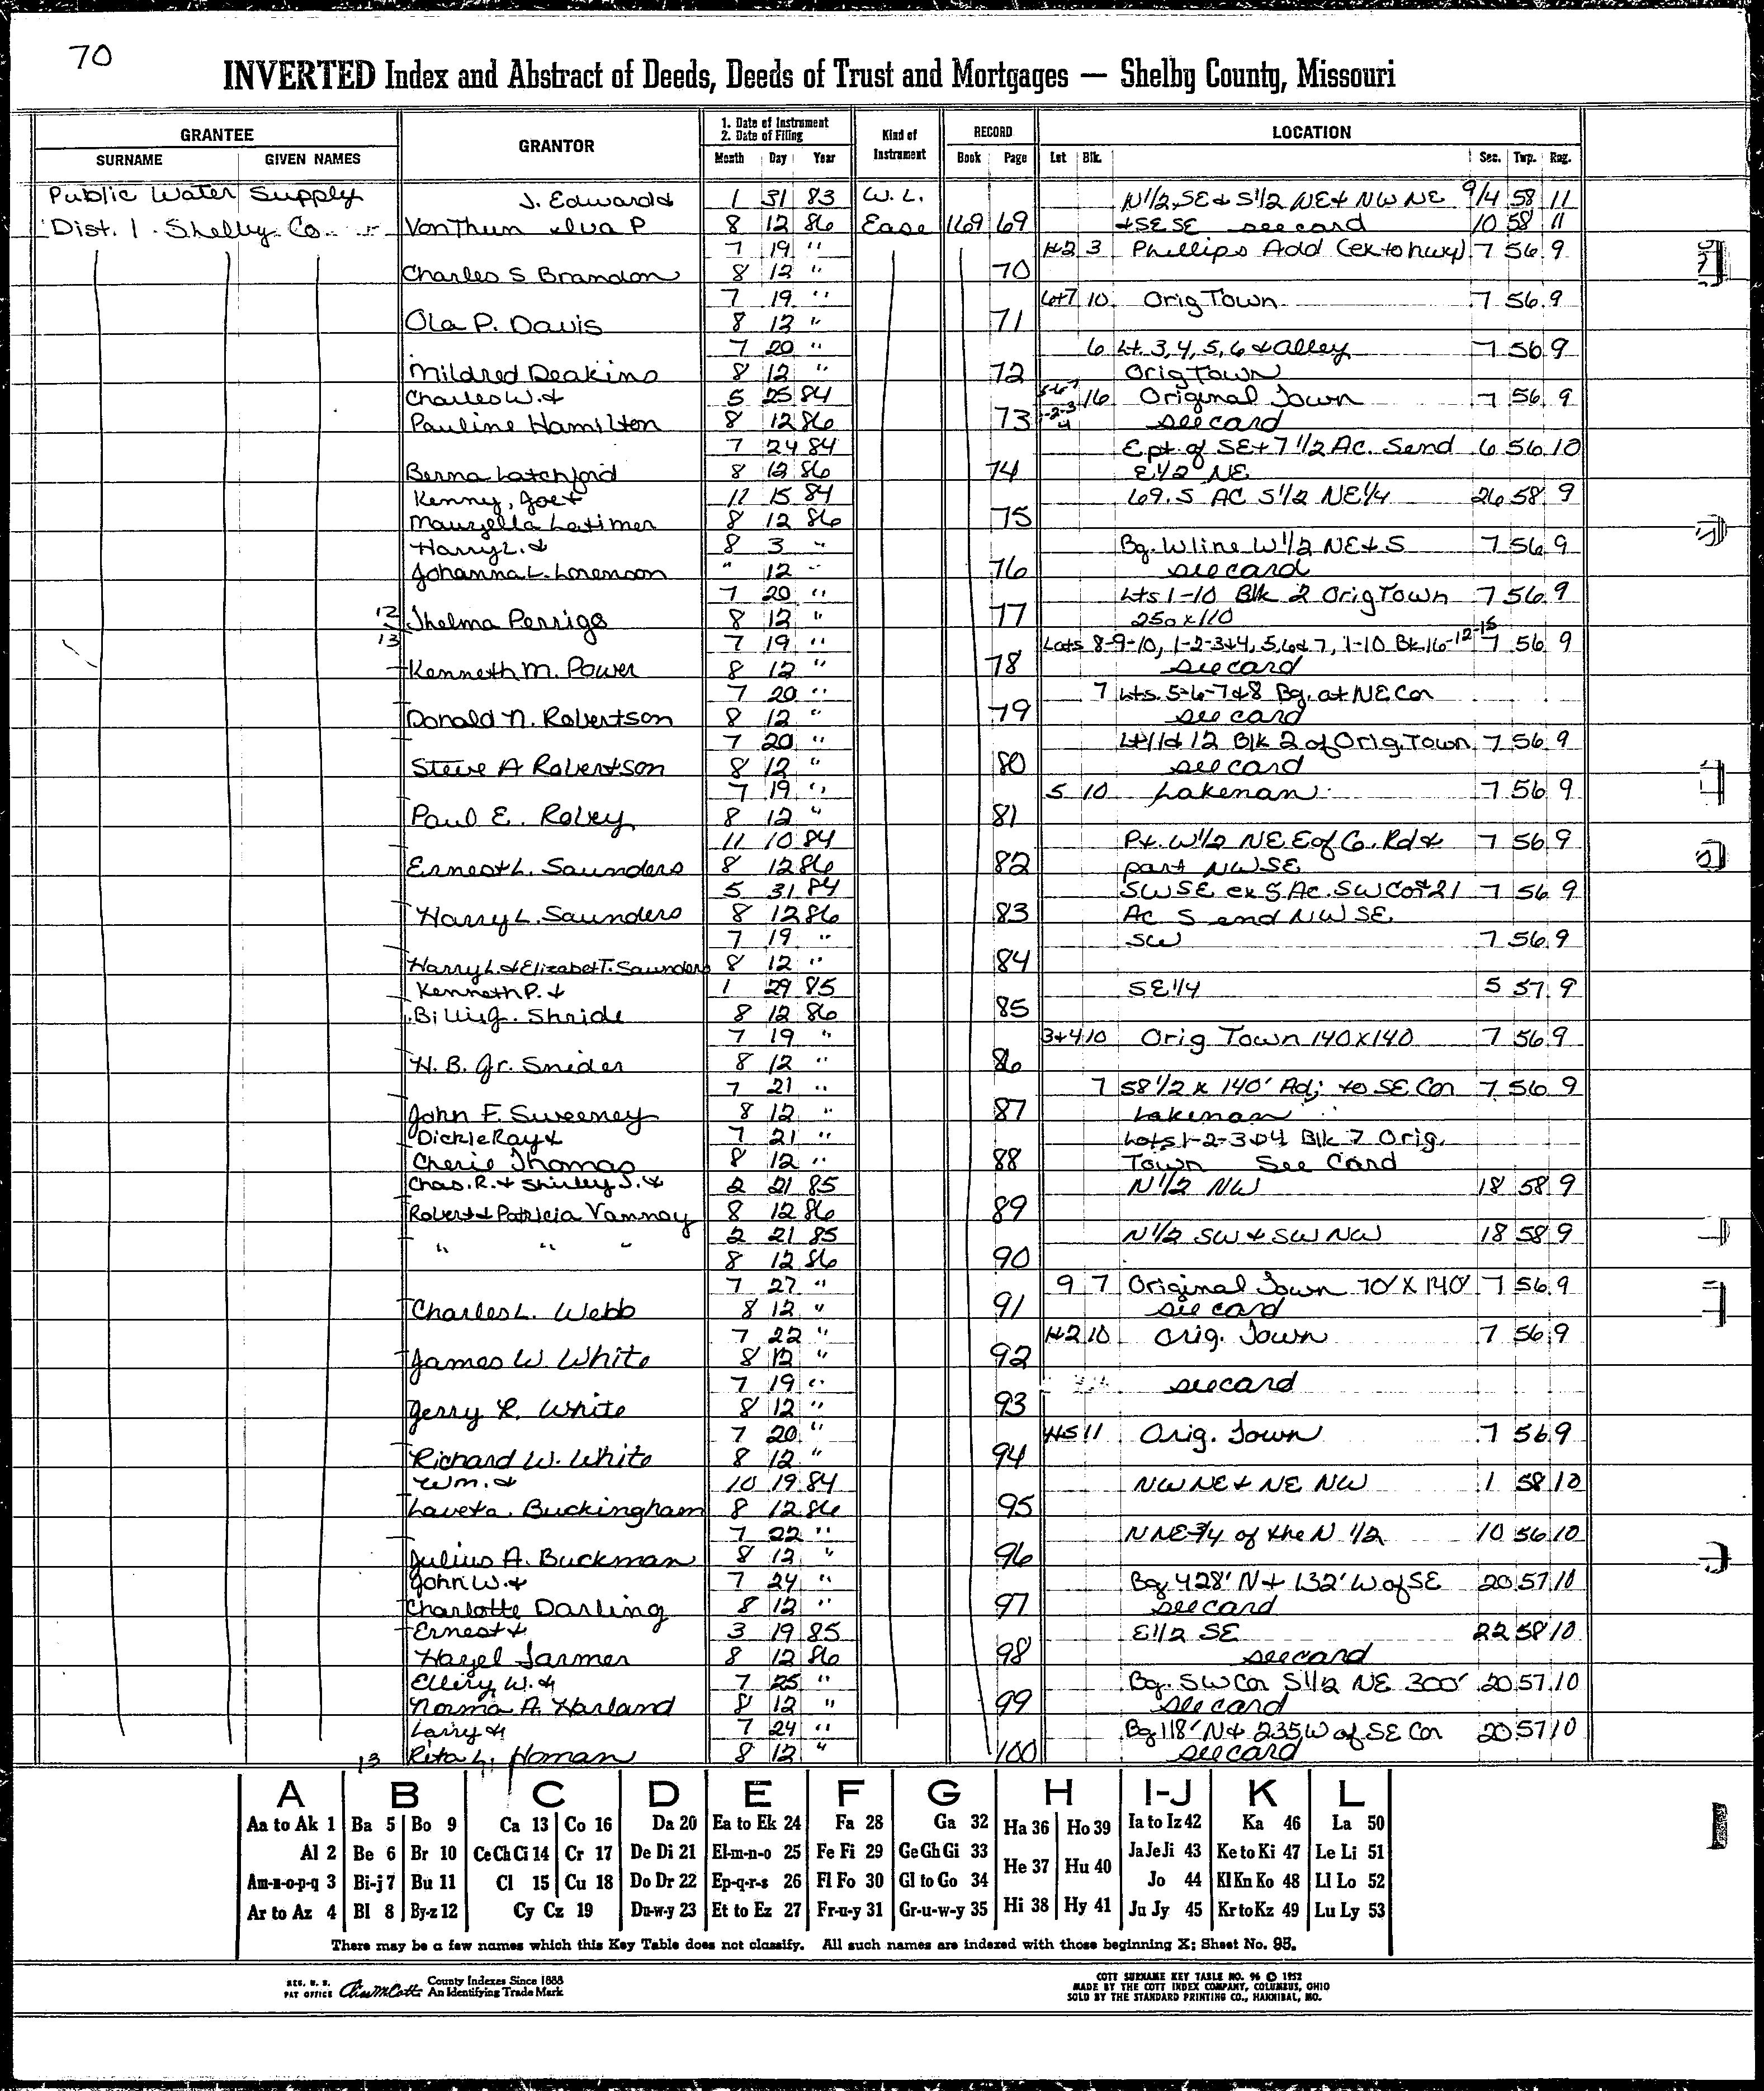 70
INVERTED Index and Abstract of Deeds, Deeds of Trust and Mortgages — Shelby County, Missouri
GRANTEE GRANTOR 1. Date of Instrument 2. Date of Filing Kind of Instrument RECORD LOCATION
SURNAME GIVEN NAMES Month Day Year Book Page Lot Blk. Sec. Twp. Rng.
Public Water Supply J. Edward & 1 31 83 W. L. N1/2 SE & S1/2 NE & NW NE 9/4 58 11
Dist. 1 Shelby Co. VonThun & Iva P 8 12 86 Ease 169 69 & SE SE see card 10 58 11
7 19 " 1+2 3 Phillips Add (ex to hwy) 7 56 9
Charles S Brandon 8 12 " 70
7 19 " 6+7 10 Orig Town 7 56 9
Ola P. Davis 8 12 " 71
7 20 " 6 Lt. 3, 4, 5, 6 & alley 7 56 9
Mildred Deakins 8 12 " 72 Orig Town
Charles W. & 5 25 84 5-6-7 16 Original Town 7 56 9
Pauline Hamilton 8 12 86 73 1-2-3 4 see card
7 24 84 E pt. of SE & 7 1/2 Ac. S end 6 56 10
Berma Latchford 8 12 86 74 E1/2 NE
Kenny, Joe & 12 15 84 69.5 AC S1/2 NE1/4 26 58 9
Mauzella Latimer 8 12 86 75
Harry L. & 8 3 " Bg. W line W1/2 NE & S 7 56 9
Johanna L. Lorenson " 12 " 76 see card
7 20 " Lts 1-10 Blk 2 Orig Town 7 56 9
12 Thelma Perrigo 8 12 " 77 250 x 110
13 7 19 " Lots 8-9-10, 1-2-3&4, 5, 6 & 7, 1-10 Bk 16-12-15 7 56 9
Kenneth M. Power 8 12 " 78 see card
7 20 " 7 Lts. 5-6-7 & 8 Bg. at NE Cor
Donald N. Robertson 8 12 " 79 see card
7 20 " Lt 11 & 12 Blk 2 of Orig. Town 7 56 9
Steve A Robertson 8 12 " 80 see card
7 19 " 5 10 Lakenan 7 56 9
Paul E. Roley 8 12 " 81
11 10 84 Pt. W1/2 NE E of Co. Rd & 7 56 9
Ernest L. Saunders 8 12 86 82 part NW SE
5 31 84 SW SE ex 5 Ac. SW Cor & 21 7 56 9
Harry L. Saunders 8 12 86 83 Ac S end NW SE
7 19 " SW 7 56 9
Harry L. & Elizabet T. Saunders 8 12 " 84
Kenneth P. & 1 29 85 SE 1/4 5 57 9
Billie J. Shride 8 12 86 85
7 19 " 3+4 10 Orig Town 140 x 140 7 56 9
H. B. Jr. Snider 8 12 " 86
7 21 " 7 58 1/2 x 140' Adj; to SE Cor 7 56 9
John F. Sweeney 8 12 " 87 Lakenan
Dickie Ray & 7 21 " Lots 1-2-3 & 4 Blk 7 Orig.
Cherie Thomas 8 12 " 88 Town See Card
Chas. R. & Shirley J. & 2 21 85 N1/2 NW 18 58 9
Robert & Patricia Vannoy 8 12 86 89
" " " 2 21 85 N1/2 SW & SW NW 18 58 9
8 12 86 90
7 27 " 9 7 Original Town 70' x 140' 7 56 9
Charles L. Webb 8 12 " 91 see card
7 22 " 1+2 10 Orig. Town 7 56 9
James W. White 8 12 " 92
7 19 " see card
Jerry R. White 8 12 " 93
7 20 " 4+5 11 Orig. Town 7 56 9
Richard W. White 8 12 " 94
Wm. & 10 19 84 NW NE & NE NW 1 58 10
Laveta Buckingham 8 12 86 95
7 22 " N NE 3/4 of the N 1/2 10 56 10
Julius A. Buckman 8 12 " 96
John W. & 7 24 " Bg 428' N & 132' W of SE 20 57 10
Charlotte Darling 8 12 " 97 see card
Ernest & 3 19 85 E1/2 SE 22 58 10
Hazel Farmer 8 12 86 98 see card
Ellery W. & 7 25 " Bg. SW Cor S1/2 NE 300' 20 57 10
Norma A. Harland 8 12 " 99 see card
Larry & 7 24 " Bg 118' N & 235 W of SE Cor 20 57 10
13 Rita L. Homan 8 12 " 100 see card
A B C D E F G H I-J K L
Aa to Ak 1 Ba 5 Bo 9 Ca 13 Co 16 Da 20 Ea to Ek 24 Fa 28 Ga 32 Ha 36 Ho 39 Ia to Iz 42 Ka 46 La 50
Al 2 Be 6 Br 10 Ce Ch Ci 14 Cr 17 De Di 21 El-m-n-o 25 Fe Fi 29 Ge Gh Gi 33 He 37 Hu 40 Ja Je Ji 43 Ke to Ki 47 Le Li 51
Am-n-o-p-q 3 Bi-j 7 Bu 11 Cl 15 Cu 18 Do Dr 22 Ep-q-r-s 26 Fl Fo 30 Gl to Go 34 Jo 44 Kl Kn Ko 48 Ll Lo 52
Ar to Az 4 Bl 8 By-z 12 Cy Cz 19 Du-w-y 23 Et to Ez 27 Fr-u-y 31 Gr-u-w-y 35 Hi 38 Hy 41 Ju Jy 45 Kr to Kz 49 Lu Ly 53
There may be a few names which this Key Table does not classify. All such names are indexed with those beginning X; Sheet No. 95.
REG. U. S. PAT OFFICE County Indexes Since 1888 An Identifying Trade Mark
COTT SURNAME KEY TABLE NO. 96 © 1952
MADE BY THE COTT INDEX COMPANY, COLUMBUS, OHIO
SOLD BY THE STANDARD PRINTING CO., HANNIBAL, MO.